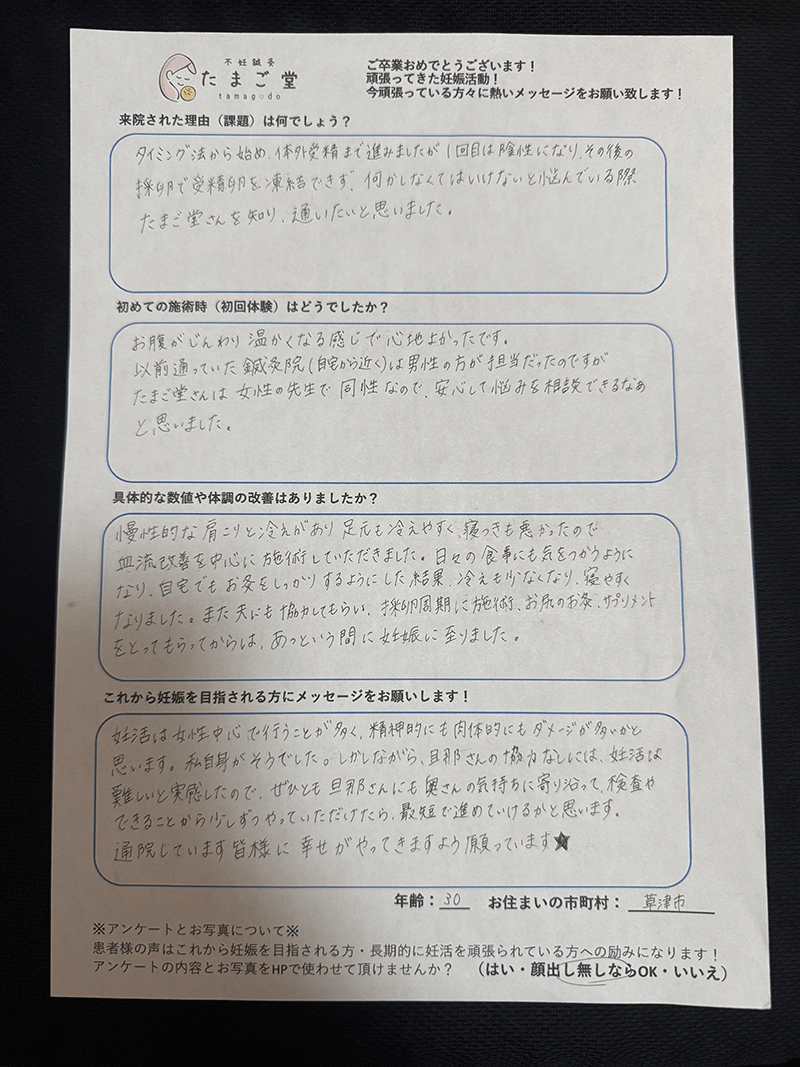 不妊鍼灸
たまご堂
tamagodo
ご卒業おめでとうございます！
頑張ってきた妊娠活動！
今頑張っている方々に熱いメッセージをお願い致します！
来院された理由（課題）は何でしょう？
タイミング法から始め、体外受精まで進みましたが1回目は陰性になり、その後の
採卵で受精卵を凍結できず、何かしなくてはいけないと悩んでいる際
たまご堂さんを知り、通いたいと思いました。
初めての施術時（初回体験）はどうでしたか？
お腹がじんわり温かくなる感じで心地よかったです。
以前通っていた鍼灸院（自宅から近く）は男性の方が担当だったのですが
たまご堂さんは女性の先生で同性なので、安心して悩みを相談できるなぁ
と思いました。
具体的な数値や体調の改善はありましたか？
慢性的な肩こりと冷えがあり足元も冷えやすく、寝つきも悪かったので
血流改善を中心に施術していただきました。日々の食事にも気をつかうように
なり、自宅でもお灸をしっかりするようにした結果、冷えも少なくなり、寝やすく
なりました。また夫にも協力してもらい、採卵周期に施術、お尻のお灸、サプリメント
をとってもらってからは、あっという間に妊娠に至りました。
これから妊娠を目指される方にメッセージをお願いします！
妊活は女性中心で行うことが多く、精神的にも肉体的にもダメージが多いかと
思います。私自身がそうでした。しかしながら、旦那さんの協力なしには、妊活は
難しいと実感したので、ぜひとも旦那さんにも奥さんの気持ちに寄り沿って、検査や
できることから少しずつやっていただけたら、最短で進めていけるかと思います。
通院しています皆様に幸せがやってきますよう願っています★
年齢：30 お住まいの市町村：草津市
※アンケートとお写真について※
患者様の声はこれから妊娠を目指される方・長期的に妊活を頑張られている方への励みになります！
アンケートの内容とお写真をHPで使わせて頂けませんか？ （はい・顔出し無しならOK・いいえ）